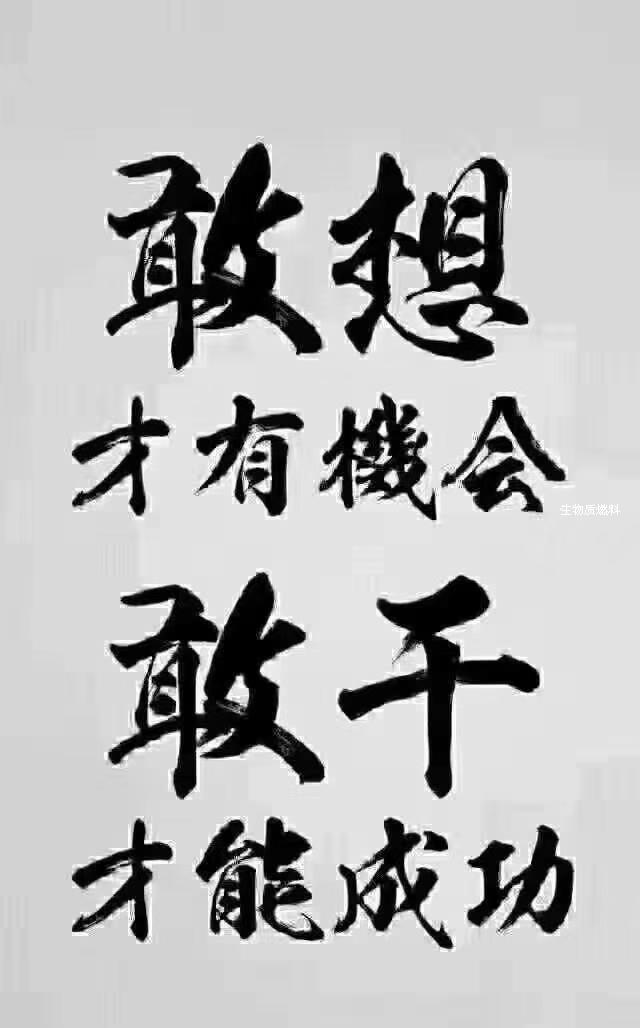 敢想
才有機会
生物质燃料
敢干
才能成功